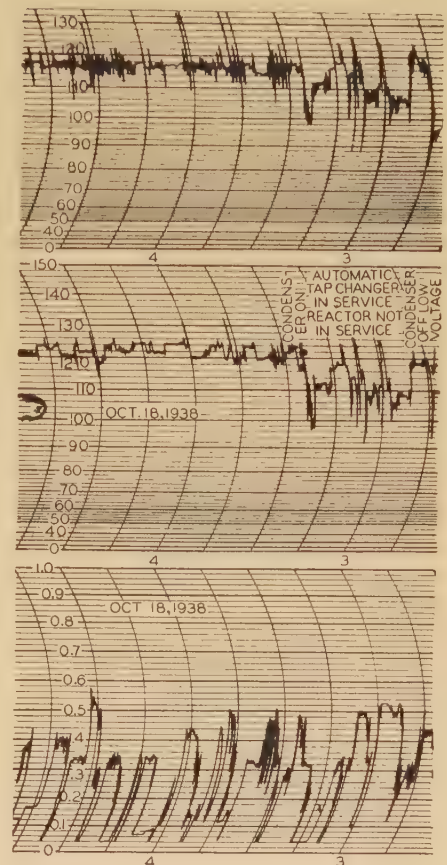 130
120
110
100
90
80
70
60
50
40
0
4
3
150
140
130
120
110
100
90
80
70
60
50
40
0
CONDENS-
ER ON
AUTOMATIC
TAP CHANGER
IN SERVICE
REACTOR NOT
IN SERVICE
CONDENSER
OFF LOW
VOLTAGE
OCT. 18, 1938
4
3
1.0
0.9
0.8
0.7
0.6
0.5
0.4
0.3
0.2
0.1
0
OCT 18, 1938
4
3